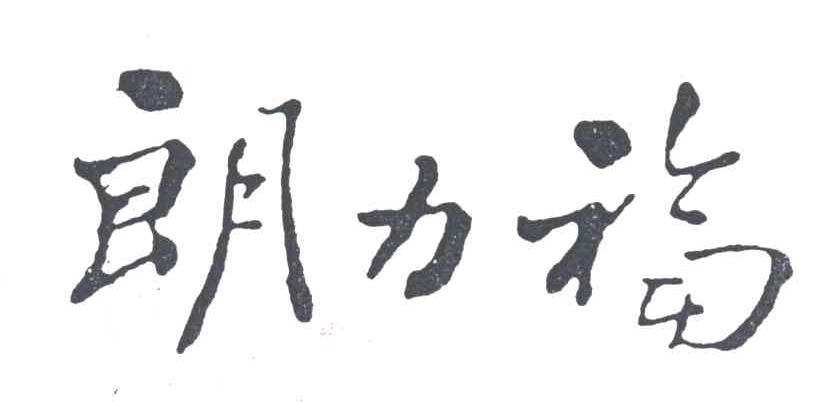 朗力福